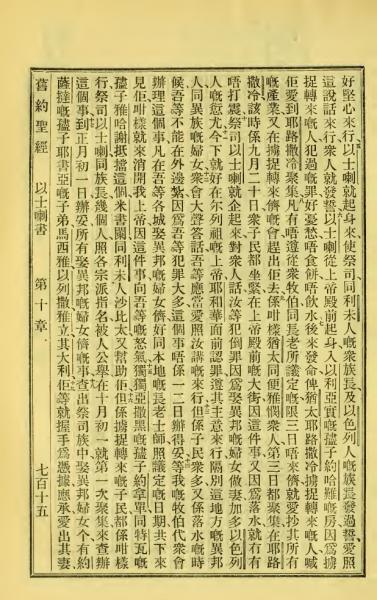 好堅心來行、以士喇就起身來使祭司同利未人嘅衆族長及以色列人嘅族長發過誓、愛照
這說話來行、衆人就發誓、以士喇從上帝殿前起身入以利亞實嘅孻子約哈難嘅房因爲擄
捉轉來嘅人犯過嘅罪好憂愁唔食餅唔飲水後來發命俾猶太耶路撒冷擄捉轉來嘅人喊
佢愛到耶路撒冷聚集凡有唔遵從衆牧伯同長老所議定嘅限三日唔來儕就愛抄其所有
嘅產業又在擄捉轉來儕嘅會趕出佢去係咁樣猶太同便雅憫衆人第三日都聚集在耶路
撒冷該時係九月二十日衆子民都坐緊在上帝殿前嘅大街因這件事又因爲落水就冇有
唔打震祭司以士喇就企起來對衆人話汝等犯倒罪因爲娶異邦嘅婦女做妻加多以色列
人嘅愆尤今下就好在尔列祖嘅上帝耶和華面前認罪遵其主意來行隔別這地方嘅異邦
人同異族嘅婦女衆會大聲答話吾等應當愛照汝講嘅來行但係子民衆多又係落水嘅時
候吾等不能在外邊紮因爲吾等犯罪大多這個事唔係一二日辦得妥等我嘅牧伯代衆會
辦理這個事凡在吾等各城娶異邦嘅婦女儕好同本地嘅長老士師照議定嘅日期共下來
見佢咁樣就來消開我上帝因這件事向吾等嘅怒氣獨獨亞撒黑嘅孻子約拿單同特瓦嘅
孻子雅哈謝抵擋這個米書闌同利未人沙比太又幫助佢但係擄捉轉來嘅子民都係咁樣
行祭司以士喇同族長幾個人照各宗派指名被人公舉在十月初一就第一次聚集來查辦
這個事到正月初一日辦妥所有娶異邦嘅婦女儕嘅事查出祭司族中娶異邦婦女个有約
薩撻嘅孻子耶書亞嘅子弟馬西雅以列撒雅立其大利佢等就握手爲憑據應承愛出其妻
舊約聖經 以士喇書 第十章 七百十五